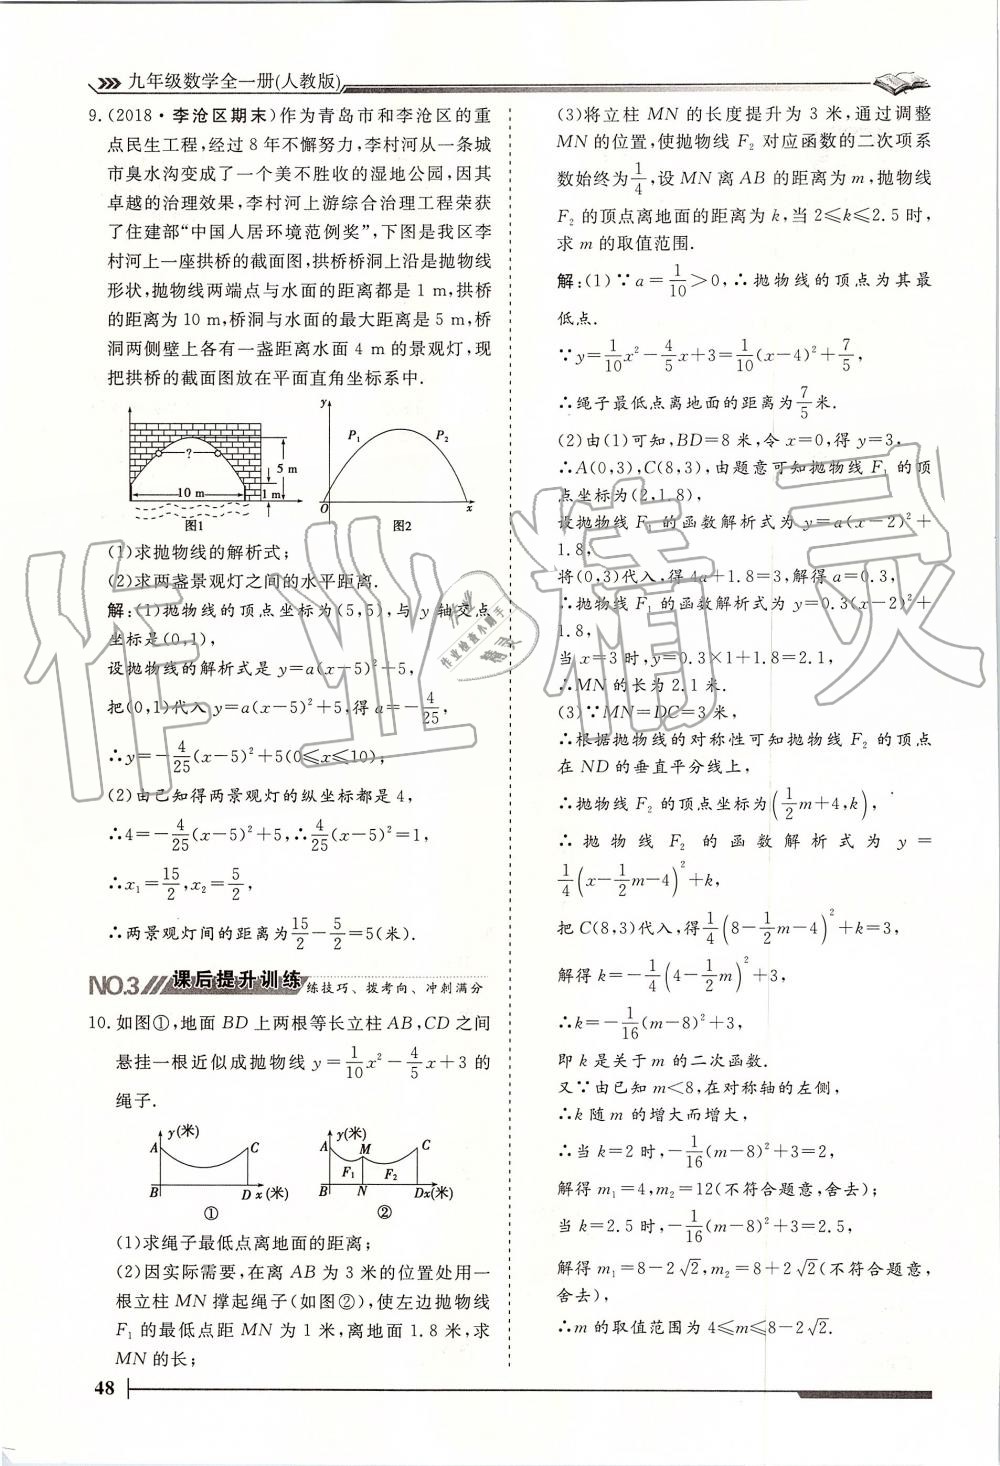 九年级数学全一册(人教版)
9.(2018·李沧区期末)作为青岛市和李沧区的重
点民生工程,经过 8 年不懈努力,李村河从一条城
市臭水沟变成了一个美不胜收的湿地公园,因其
卓越的治理效果,李村河上游综合治理工程荣获
了住建部“中国人居环境范例奖”,下图是我区李
村河上一座拱桥的截面图,拱桥桥洞上沿是抛物线
形状,抛物线两端点与水面的距离都是 1 m,拱桥
的距离为 10 m,桥洞与水面的最大距离是 5 m,桥
洞两侧壁上各有一盏距离水面 4 m 的景观灯,现
把拱桥的截面图放在平面直角坐标系中.
?
5 m
10 m
1 m
图1
y
P₁
P₂
O
x
图2
(1)求抛物线的解析式;
(2)求两盏景观灯之间的水平距离.
解:(1)抛物线的顶点坐标为(5,5),与 y 轴交点
坐标是(0,1),
设抛物线的解析式是 y=a(x-5)²+5,
把(0,1)代入 y=a(x-5)²+5,得 a=-4/25,
∴y=-4/25(x-5)²+5(0≤x≤10),
(2)由已知得两景观灯的纵坐标都是 4,
∴4=-4/25(x-5)²+5,∴4/25(x-5)²=1,
∴x₁=15/2,x₂=5/2,
∴两景观灯间的距离为15/2-5/2=5(米).
NO.3 课后提升训练 练技巧、拨考向、冲刺满分
10.如图①,地面 BD 上两根等长立柱 AB,CD 之间
悬挂一根近似成抛物线 y=1/10x²-4/5x+3 的
绳子.
y(米)
A
C
B
D
x(米)
①
y(米)
A
M
C
F₁
F₂
B
N
D
x(米)
②
(1)求绳子最低点离地面的距离;
(2)因实际需要,在离 AB 为 3 米的位置处用一
根立柱 MN 撑起绳子(如图②),使左边抛物线
F₁ 的最低点距 MN 为 1 米,离地面 1.8 米,求
MN 的长;
(3)将立柱 MN 的长度提升为 3 米,通过调整
MN 的位置,使抛物线 F₂ 对应函数的二次项系
数始终为1/4,设 MN 离 AB 的距离为 m,抛物线
F₂ 的顶点离地面的距离为 k,当 2≤k≤2.5 时,
求 m 的取值范围.
解:(1)∵a=1/10>0,∴抛物线的顶点为其最
低点.
∵y=1/10x²-4/5x+3=1/10(x-4)²+7/5,
∴绳子最低点离地面的距离为7/5米.
(2)由(1)可知,BD=8 米,令 x=0,得 y=3,
∴A(0,3),C(8,3),由题意可知抛物线 F₁ 的顶
点坐标为(2,1.8),
设抛物线 F₁ 的函数解析式为 y=a(x-2)²+
1.8,
将(0,3)代入,得 4a+1.8=3,解得 a=0.3,
∴抛物线 F₁ 的函数解析式为 y=0.3(x-2)²+
1.8,
当 x=3 时,y=0.3×1+1.8=2.1,
∴MN 的长为 2.1 米.
(3)∵MN=DC=3 米,
∴根据抛物线的对称性可知抛物线 F₂ 的顶点
在 ND 的垂直平分线上,
∴抛物线 F₂ 的顶点坐标为(1/2m+4,k),
∴ 抛物线 F₂ 的函数解析式为 y=
1/4(x-1/2m-4)²+k,
把 C(8,3)代入,得1/4(8-1/2m-4)²+k=3,
解得 k=-1/4(4-1/2m)²+3,
∴k=-1/16(m-8)²+3,
即 k 是关于 m 的二次函数.
又∵由已知 m<8,在对称轴的左侧,
∴k 随 m 的增大而增大,
∴当 k=2 时,-1/16(m-8)²+3=2,
解得 m₁=4,m₂=12(不符合题意,舍去);
当 k=2.5 时,-1/16(m-8)²+3=2.5,
解得 m₁=8-2√2,m₂=8+2√2(不符合题意,
舍去),
∴m 的取值范围为 4≤m≤8-2√2.
48
作业精灵
作业检查小助手
精灵